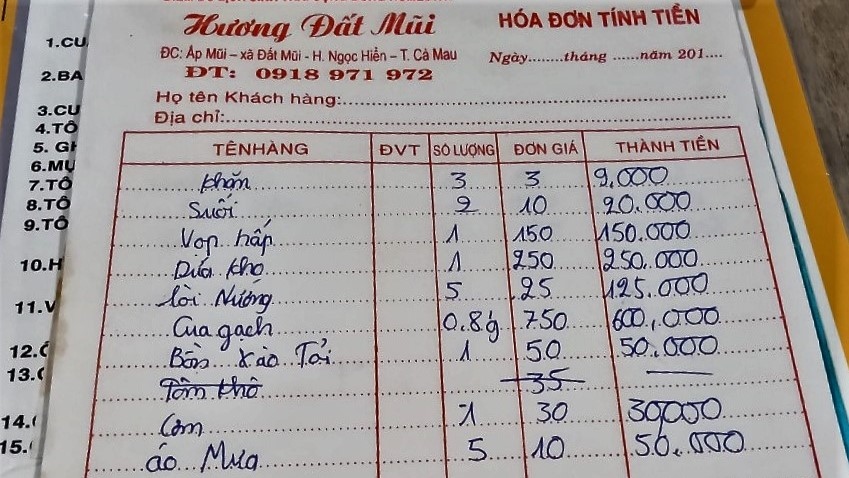 Hương Đất Mũi
HÓA ĐƠN TÍNH TIỀN
ĐC: Ấp Mũi – xã Đất Mũi - H. Ngọc Hiển – T. Cà Mau
Ngày........tháng ......năm 201....
ĐT: 0918 971 972
Họ tên Khách hàng:
Địa chỉ:
TÊN HÀNG ĐVT SỐ LƯỢNG ĐƠN GIÁ THÀNH TIỀN
Khăn 3 3 9.000
Suối 2 10 20.000
Vọp hấp 1 150 150.000
Dứa kho 1 250 250.000
Lòi Nướng 5 25 125.000
Cua gạch 0.8g 750 600.000
Bồn xào Tỏi 1 50 50.000
Tôm khô 35
Cơm 1 30 30000
áo Mưa 5 10 50.000
1.CU
2.BA
3.CU
4.TÔ
5. GH
6.MỰ
7.TÔ
8.TÔ
9.TÔ
10.H
11.V
12.
13.
14.
15.